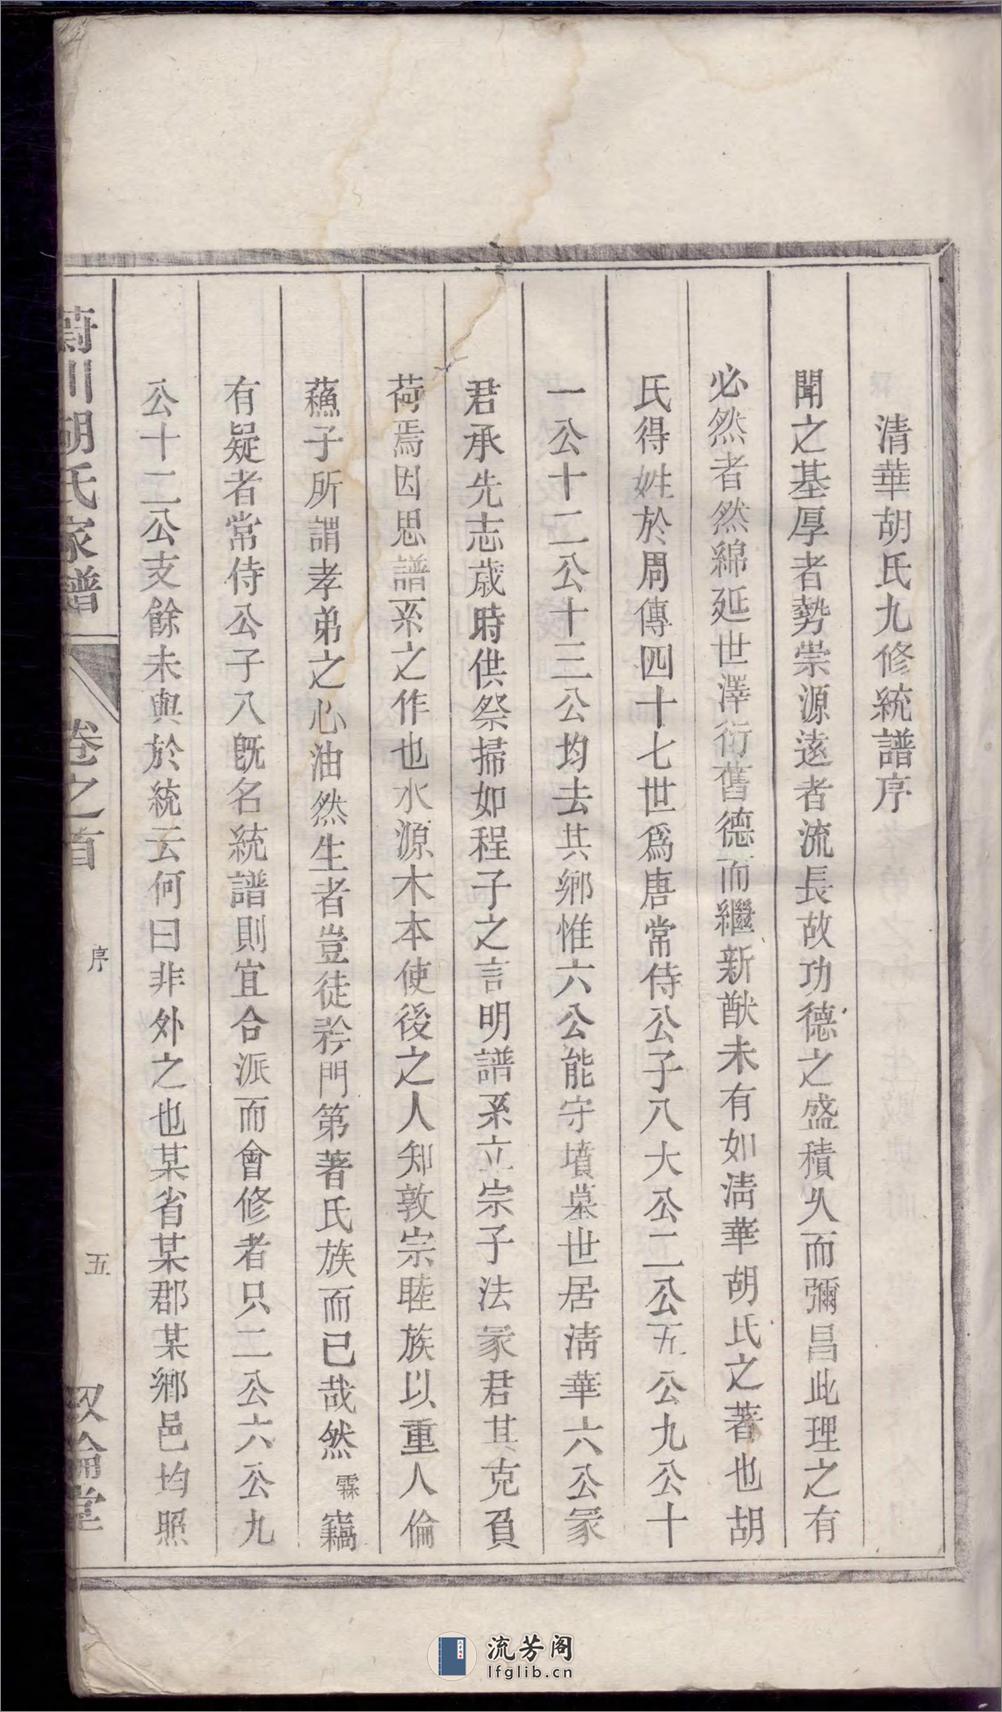 清華胡氏九修統譜序
聞之基厚者勢崇源遠者流長故功德之盛積久而彌昌此理之有
必然者然綿延世澤衍舊德而繼新猷未有如清華胡氏之著也胡
氏得姓於周傳四十七世爲唐常侍公子八大公二公五公九公十
一公十二公十三公均去其鄉惟六公能守墳墓世居清華六公冡
君承先志歲時供祭掃如程子之言明譜系立宗子法冡君其克負
荷焉因思譜系之作也水源木本使後之人知敦宗睦族以重人倫
蘓子所謂孝弟之心油然生者豈徒矜門第著氏族而已哉然霖竊
有疑者常侍公子八旣名統譜則宜合派而會修者只二公六公九
公十二公支餘未與於統云何曰非外之也某省某郡某鄉邑均照
蔚川胡氏家譜
卷之首
序
五
敘倫堂
流芳阁
lfglib.cn